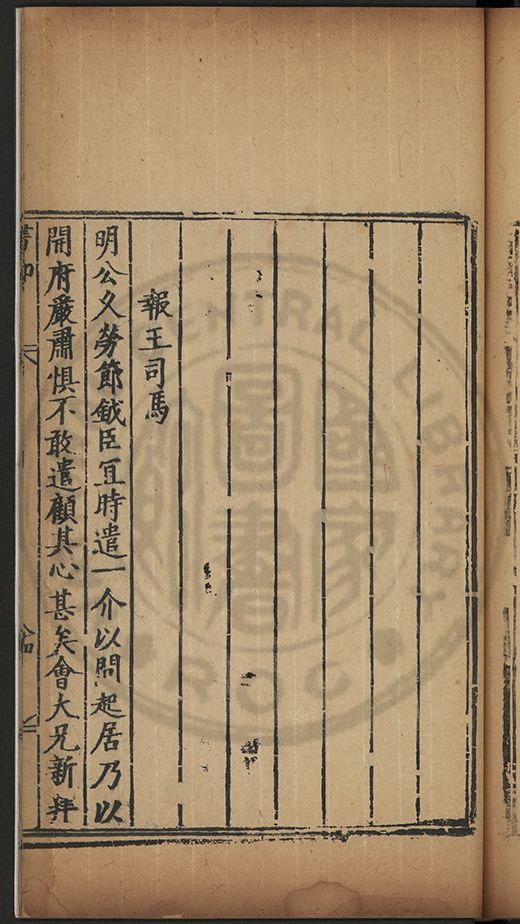 報王司馬
明公久勞節鉞臣宜時遣一介以問起居乃以
開府嚴肅惧不敢遣顧其心甚矣會大兄新拜
CENTRAL LIBRARY
R.O.C
國家圖書館